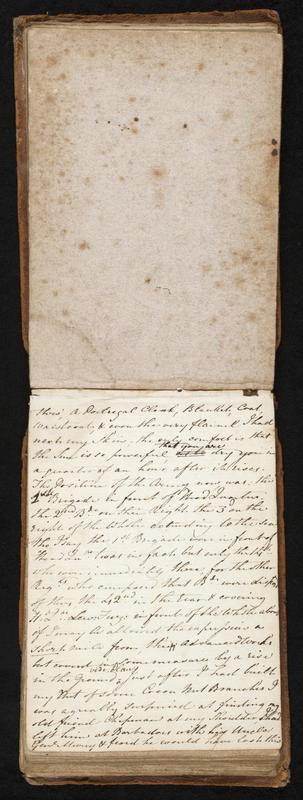 thro' a Portugal Cloak, Blanket, Coat,
Waistcoat, & even the very flannel I had
next my Skin, the only comfort is that
that you are
the Sun is so powerful dry you in
a quarter of an hour after it rises.
The Position of the Army now was, the
2nd Brigade in front of Head Quarters
the Bde on their Right the 3 on the
right of the whole extending to the sea
the 1st Brigade were in front of
Head twas in fact but only the
who were immediately there for the other
Regts who composed that Bde were
of thus the 42nd in the rear covering
in front of the whole about
if I may be allowed the expression a
Short mile from their Advanced Works
but covered in some measure by a rise
one day
in the Ground, just after I had built
my Hut of some Cocoa Nut Branches I
was agreeably surprised at finding my
old friend Chapman at my Shoulder I had
left him at Barbadoes with his Uncle
Genl & feard he would have lost this